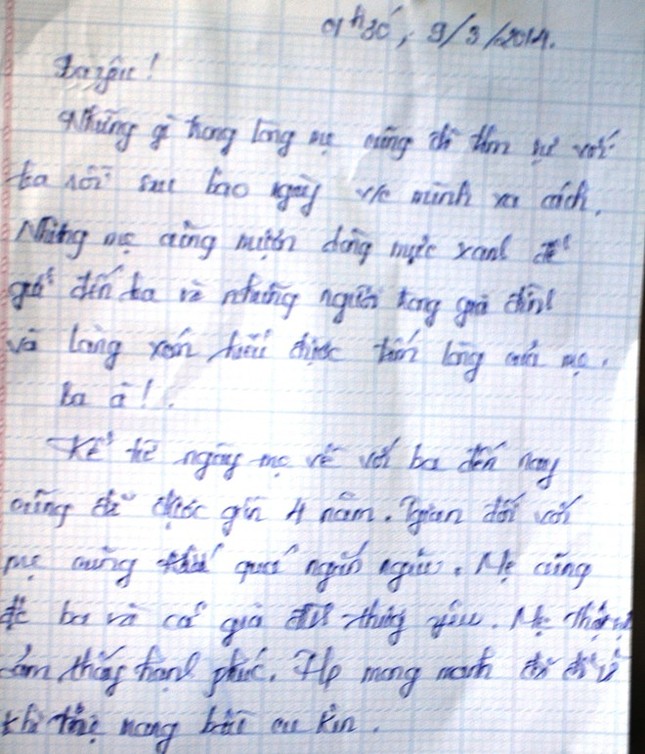 9/3/2014.
Ba yêu!
Những gì trong lòng mẹ cũng đã tâm sự với
ba rồi sau bao ngày v/c mình xa cách.
Nhưng mẹ cũng mượn dòng mực xanh để
gửi đến ba và những người trong gia đình
và làng xóm hiểu được tấm lòng của mẹ.
Ba à!
Kể từ ngày mẹ về với ba đến nay
cũng đã được gần 4 năm. gian đối với
mẹ cũng quá ngắn ngủi. Mẹ cũng
ba và cả gia thương yêu. Mẹ thật
cảm thấy hạnh phúc. Hp mong manh đã
khi mang